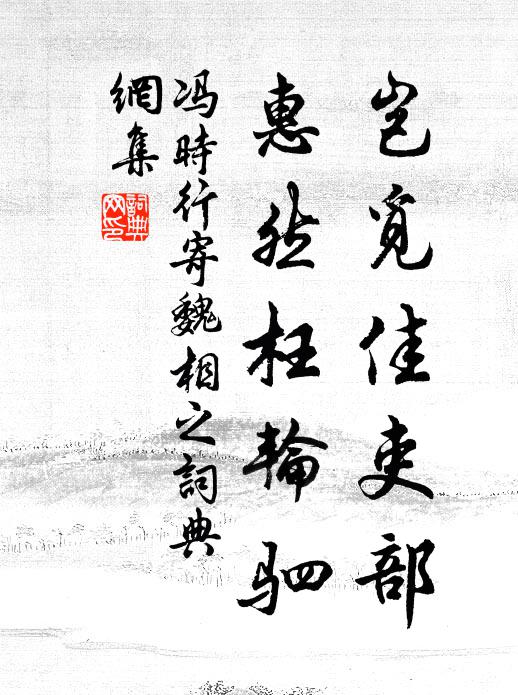 岂觅佳吏部
惠然枉輪驷
冯時行寄魏相之詞典
網集
詞典
网印